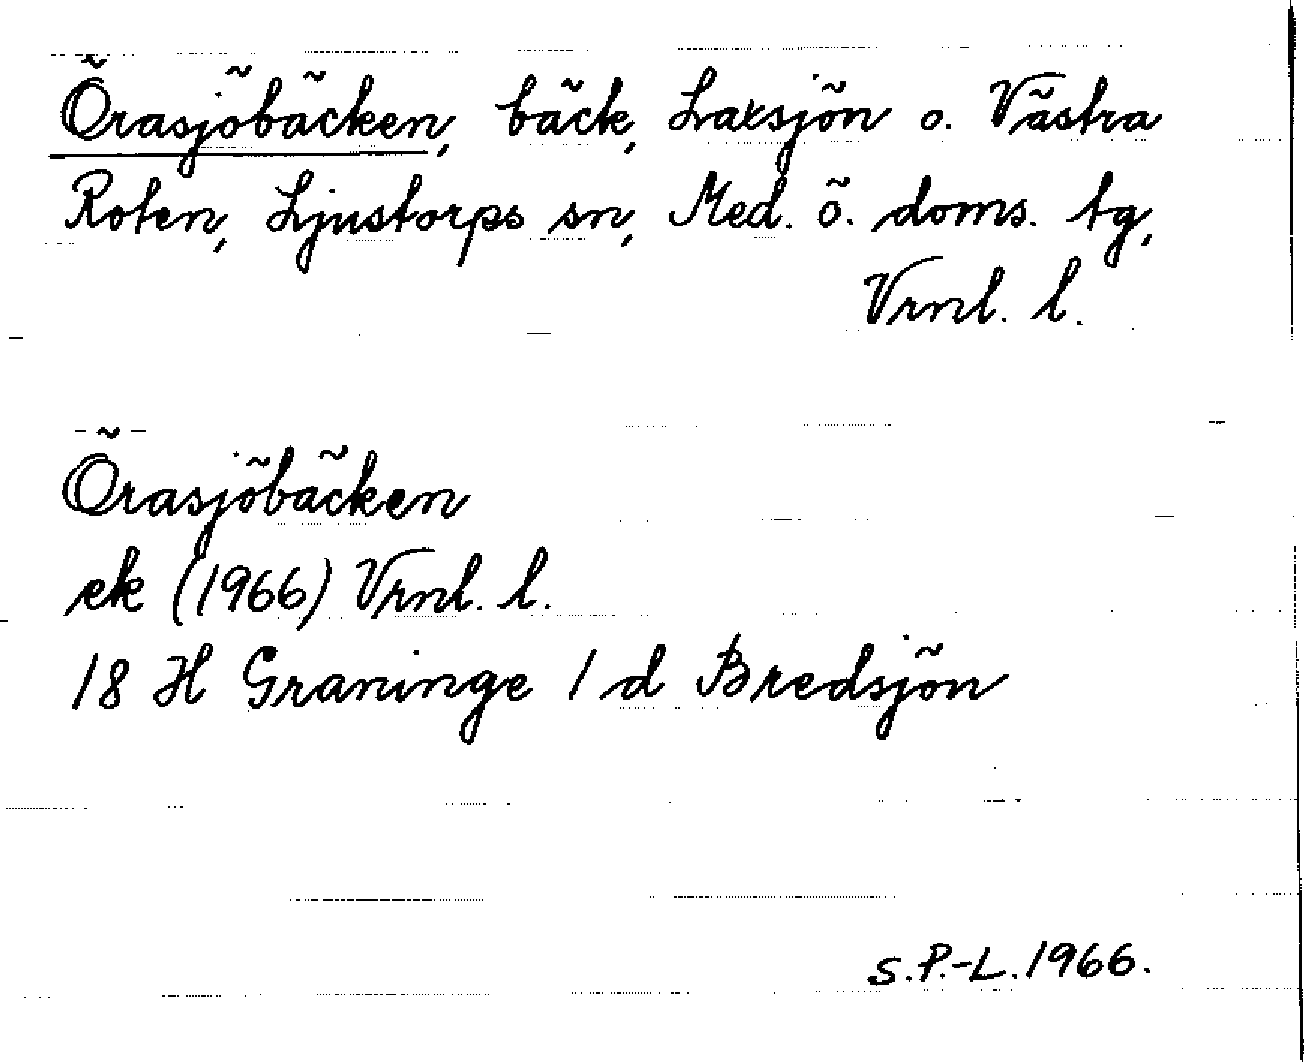 Örasjöbäcken, bäck, Laxsjön o. Västra
Roten, Ljustorps sn, Med. ö. doms. tg,
Vrnl. l.
Örasjöbäcken
ek (1966) Vrnl. l.
18 H Graninge 1 d Bredsjön
S.P.-L. 1966.